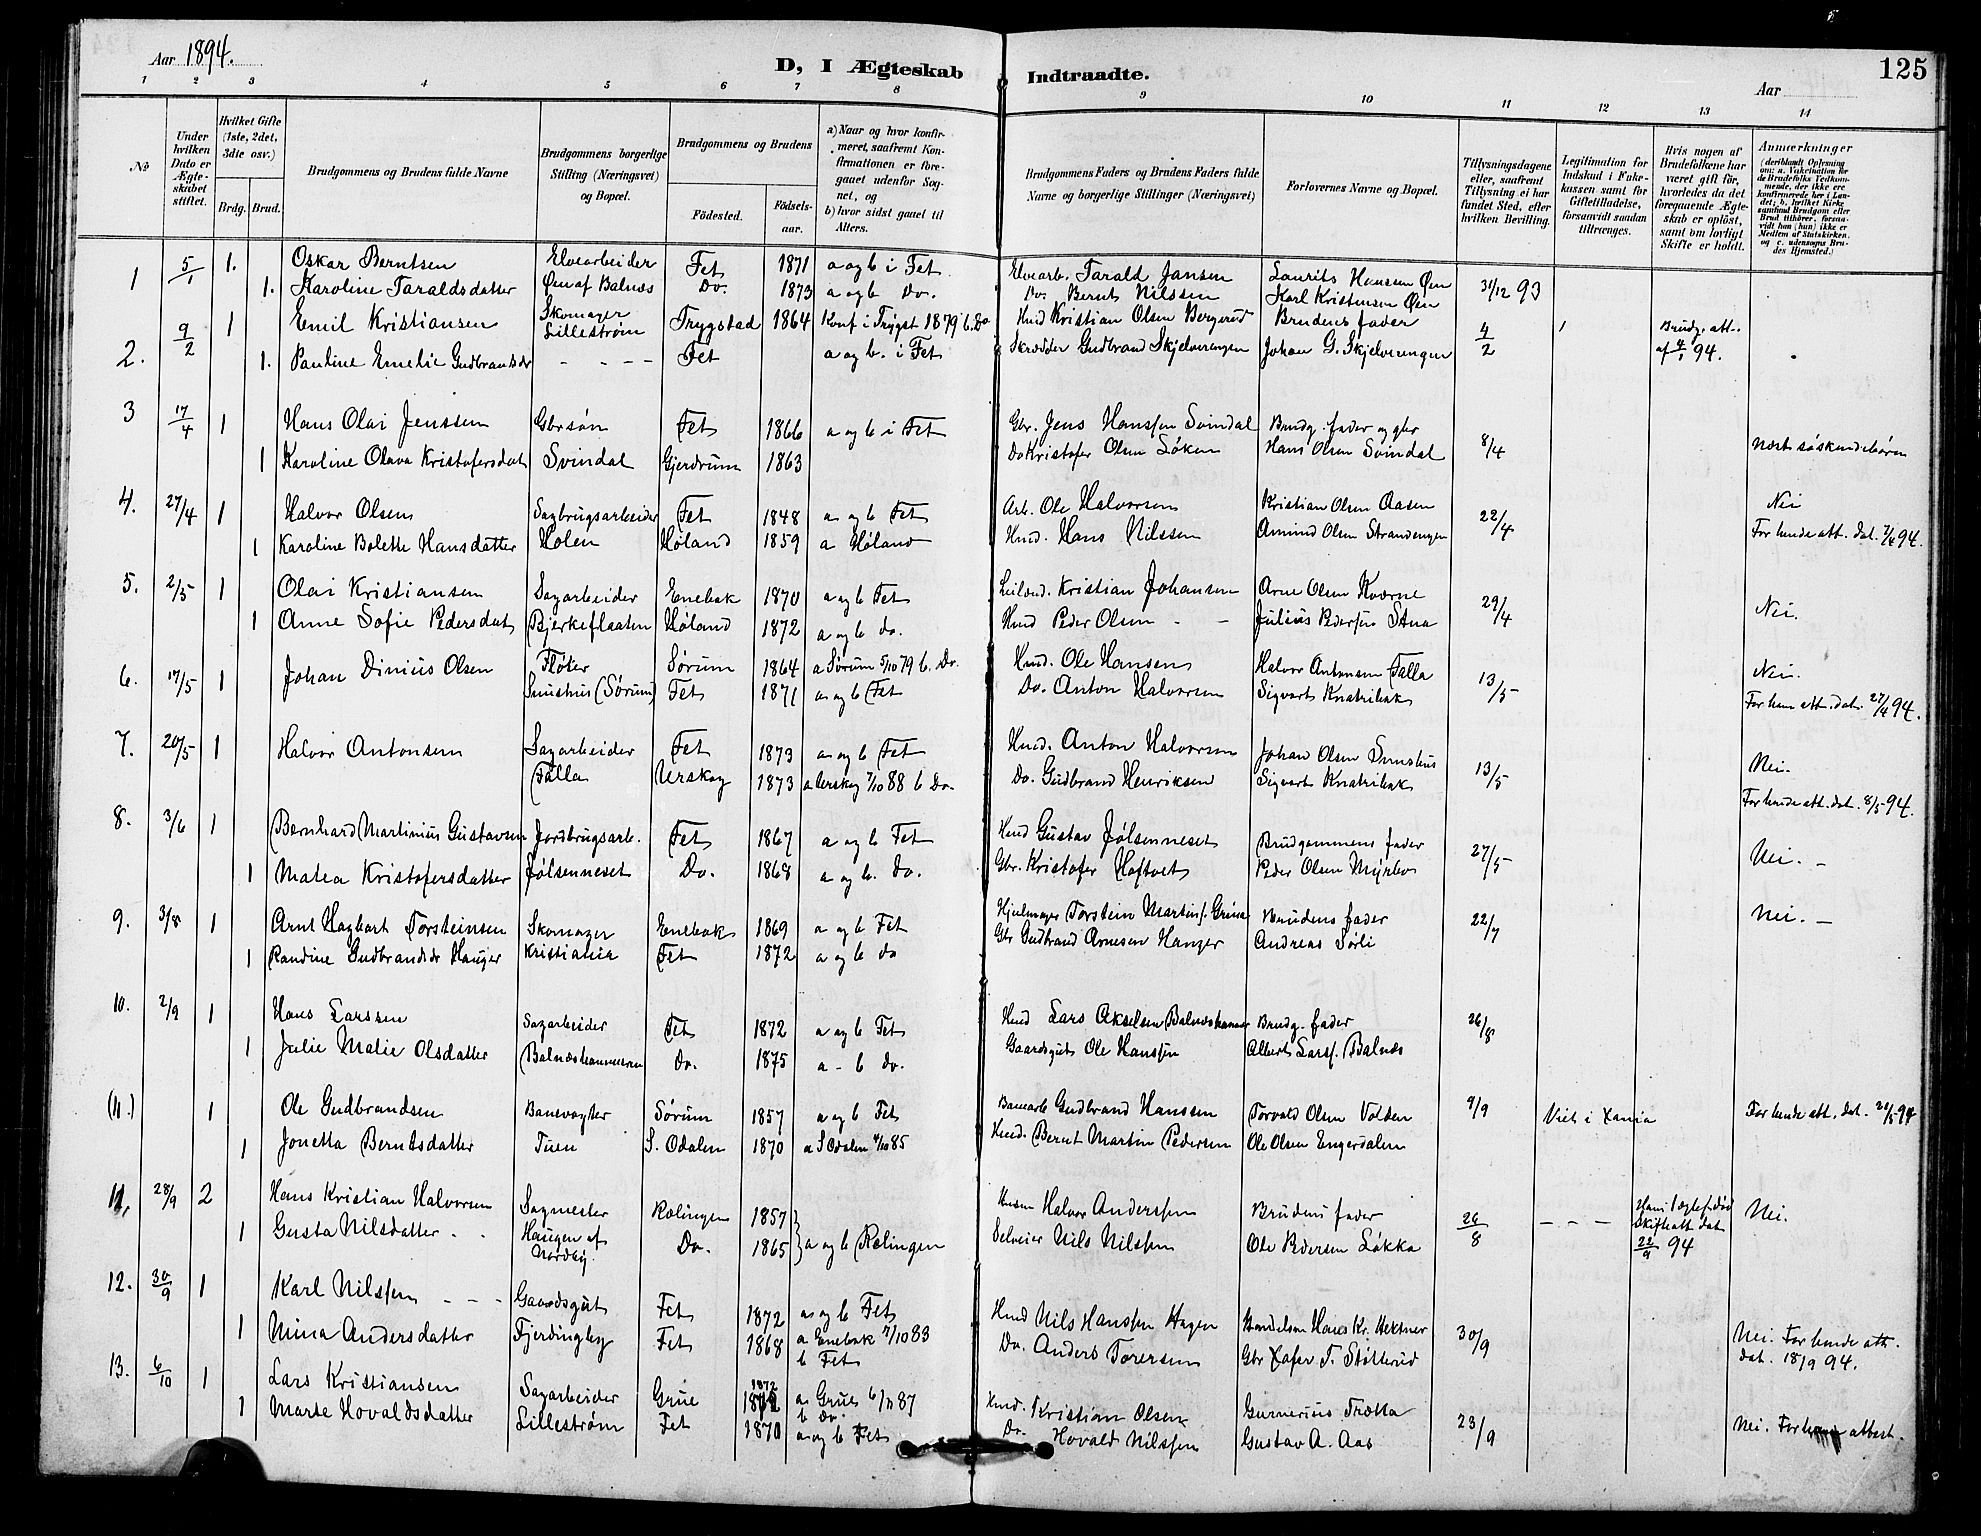 Aar 1894.
D, I Ægteskab Indtraadte.
Aar
125
1 2 3 4 5 6 7 8 9 10 11 12 13 14
No
Under hvilken Dato er Ægteskabet stiftet.
Hvilket Gifte (1ste, 2det, 3die osv.)
Brdg. Brud.
Brudgommens og Brudens fulde Navne
Brudgommens borgerlige Stilling (Næringsvei) og Bopæl.
Brudgommens og Brudens
Födested.
Födselsaar.
a) Naar og hvor konfirmeret, saafremt Konfirmationen er foregaaet udenfor Sognet, og
b) hvor sidst gaaet til Alters.
Brudgommens Faders og Brudens Faders fulde Navne og borgerlige Stillinger (Næringsvei)
Forlovernes Navne og Bopæl.
Tillysningsdagene eller, saafremt Tillysning ei har fundet Sted, efter hvilken Bevilling.
Legitimation for Indskud i Fukekassen samt for Giftetilladelse, forsaavidt saadan tiltrænges.
Hvis nogen af Brudefolkene har været gift för, hvorledes da det foregaaende Ægteskab er oplöst, samt om lovligt Skifte er holdt.
Anmærkninger (deriblandt Oplysning om: a. Vakcination for de Brudefolks Vedkommende, der ikke ere konfirmerede her i Landet; b. hvilket Kirkesamfund Brudgom eller Brud tilhörer, forsaavidt han (hun) ikke er Medlem af Statskirken, og c. udensogns Brudes Hjemsted.)
1 5/1 1. Oskar Berntsen Elvearbeider Fet 1871 a og b i Fet Elvearb. Tarald Jansen Laurits Hansen Øen 31/12 93
1. Karoline Taraldsdatter Øen af Balnæs Do. 1873 a og b Do. Do. Bernt Nilssen Karl Kristensen Øen
2. 9/2 1 Emil Kristiansen Skomager Lillestrøm Trygstad 1864 Konf i Trygst 1879 b. Do Hmd Kristian Olsen Bergerud Brudens fader 4/2 Brudg. att. af 4/1 94.
1. Pauline Emelie Gudbrandsdr - - - - Fet a og b. i Fet Skrædder Gudbrand Skjelverengen Johan G. Skjelverengen
3 17/4 1 Hans Olai Jenssen Gbrsøn Fet 1866 a og b i Fet Gbr. Jens Hanssen Svindal Brudg. fader og gbr 8/4
1 Karoline Olava Kristofersdat Svindal Gjerdrum 1863 Do Kristofer Olsen Løken Hans Olsen Svindal Nært søskendebørn
4. 27/4 1 Halvor Olsen Sagbrugsarbeider Fet 1848 a og b Fet Arb. Ole Halvorsen Kristian Olsen Aasen 22/4 Nei
1 Karoline Bolette Hansdatter Holen Høland 1859 a Høland Hmd. Hans Nilssen Amund Olsen Strandengen For hende att. dat. 7/4 94.
5. 2/5 1 Olai Kristiansen Sagarbeider Enebak 1870 a og b Fet Leilænd. Kristian Johansen Arne Olsen Kværne 29/4
1 Anne Sofie Pedersdat Bjerkeflaaten Høland 1872 a og b do. Hmd Peder Olsen - - Julius Pedersen Stua Nei.
6. 17/5 1 Johan Dinius Olsen Fløter Sørum 1864 a Sørum 5/10 79 b. Do. Hmd. Ole Hansen Halvor Antonsen Falla 13/5 Nei.
Smushus (Sørum) Fet 1871 a og b Fet Do. Anton Halvorsen Sigvart Knatribak For ham att. dat. 27/4 94.
7. 20/5 1 Halvor Antonsen Sagarbeider Fet 1873 a og b Fet Hmd. Anton Halvorsen Johan Olsen Smushus 13/5 Nei.
Falla Urskog 1873 a Urskog 7/10 88 b Do. Do. Gudbrand Henriksen Sigvart Knatribak For hende att. dat. 8/5 94.
8. 3/6 1 Bernhard Martinius Gustavsen Jordbrugsarb. Fet 1867 a og b Fet Hmd Gustav Jølsenneset Brudgommens fader 27/5 Nei. -
1 Matea Kristofersdatter Jølsenneset Do. 1868 a og b. Do. Gbr. Kristofer Hoftvet Peder Olsen Myrbo
9. 3/8 1 Arnt Hagbart Torsteinsen Skomager Enebak 1869 a og b Fet Hjulmager Torstein Martins. Grina Brudens fader 22/7 Nei. -
1 Randine Gudbrandsdr Hauger Kristiania Fet 1872 a og b do Gbr Gudbrand Arnesen Hauger Andreas Sørli
10. 2/9 1 Hans Larssen Sagarbeider Fet 1872 a og b Fet Hmd Lars Akselsen Balnæshammer Brudg. fader 26/8
1 Julie Matie Olsdatter Balnæshammeren Do. 1875 a - b do. Gaardsgut Ole Hanssen Albert Larss. Balnæs
(11.) 1 Ole Gudbrandsen Banevogter Sørum 1857 a og b Fet Banearb Gudbrand Hanssen Torvald Olsen Volden 9/9 Viet i Xania For hende att. dat. 20/5 94
1 Jonetta Berntsdatter Tuen S. Odalen 1870 a S Odalen 4/10 85 Hmd. Bernt Martin Pedersen Ole Olsen Engerdalen
11, 28/9 2 Hans Kristian Halvorsen Sagmester Rælingen 1857 Halvor Anderssen Brudens fader 26/8 - - - Hans 1 ægtef. død Skifteatt dat 22/9 94 Nei.
1 Gusta Nilsdatter Haugen af Nordby. Do. 1865 a og b Rælingen Selveier Nils Nilssen Ole Pedersen Løkka
12. 30/9 1 Karl Nilssen - - - Gaardsgut Fet 1872 a og b Fet Hmd Nils Hanssen Hagen Handelsm Hans Kr. Hektner 30/9
1 Mina Andersdatter Fjerdingby Fet 1868 a Enebak 7/10 83 b Fet Do. Anders Torersen Gbr Xofer T. Støtterud Nei. For hende att. dat. 18/9 94.
13. 6/10 1 Lars Kristiansen Sagarbeider Grue 1872 a Grue 6/11 87 b Do. Hmd. Kristian Olsen Gunnerius Trætta 23/9
1 Marte Hovaldsdatter Lillestrøm Fet 1870 a og b Fet Do. Hovald Nilssen Gustav A. Aas Nei. For attest.